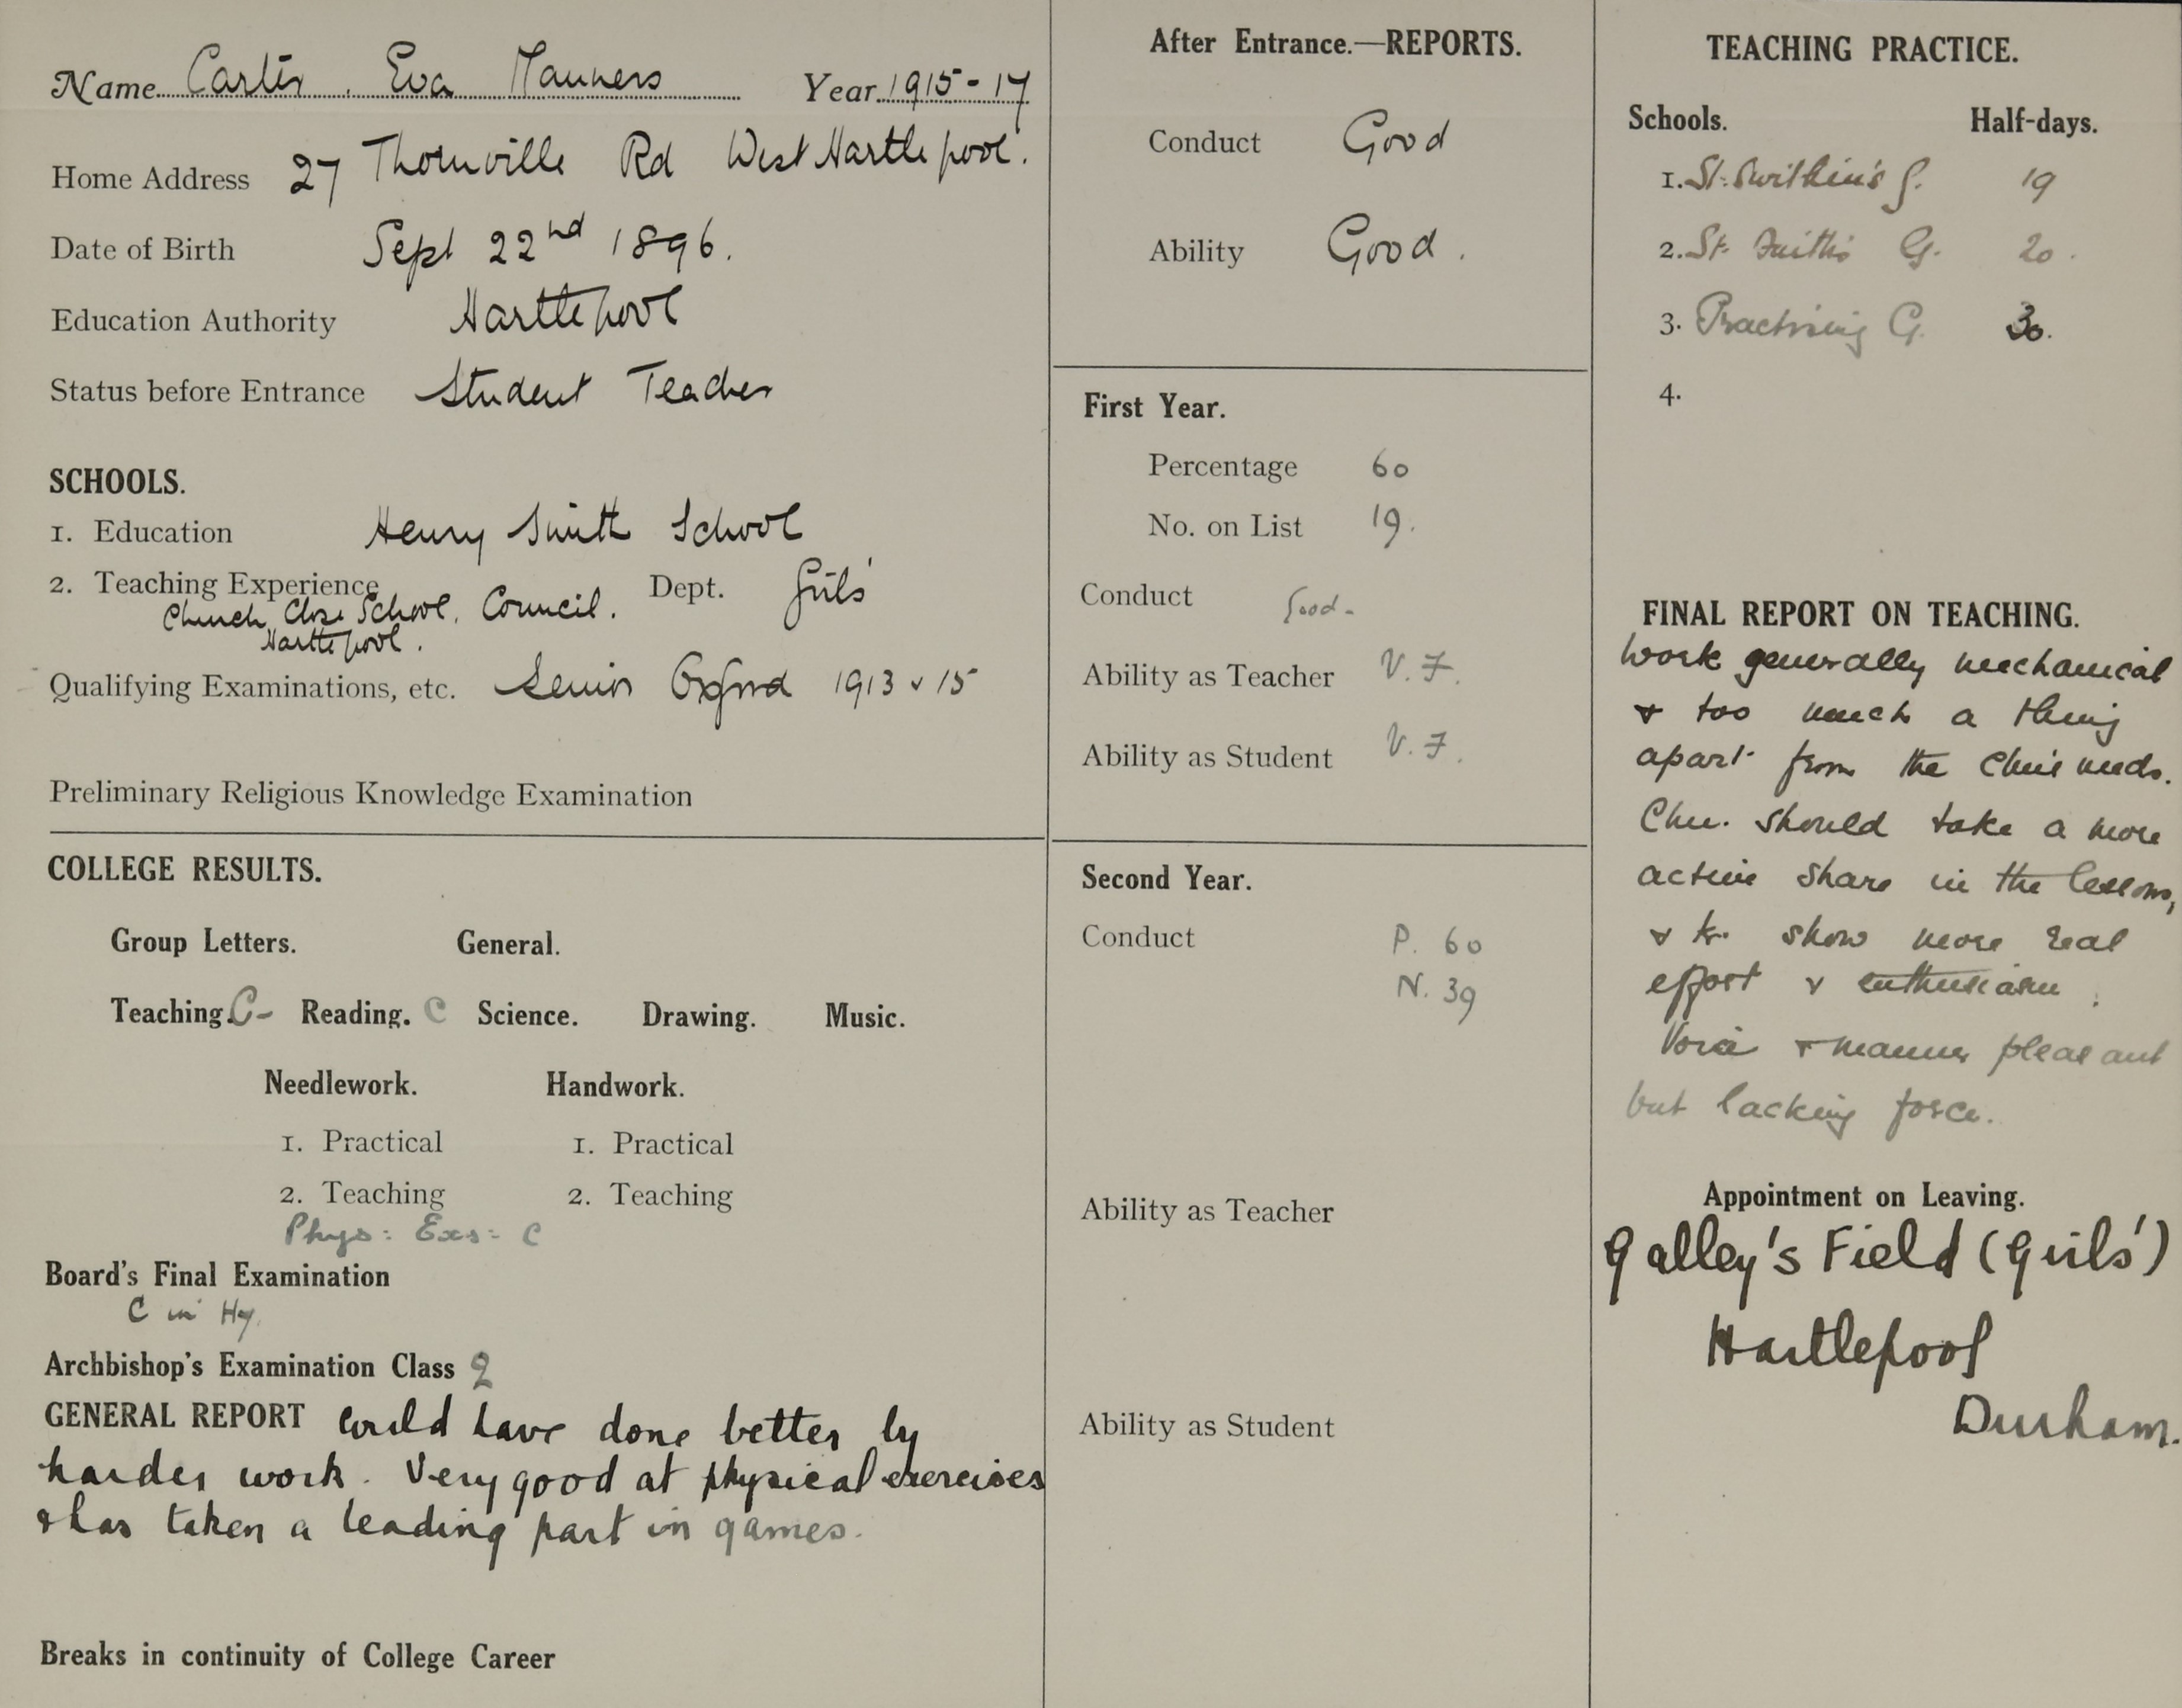 Name Carter, Eva Manners Year 1915-17
Home Address 27 Thornville Rd West Hartlepool.
Date of Birth Sept 22nd 1896.
Education Authority Hartlepool
Status before Entrance Student Teacher
SCHOOLS.
1. Education Henry Smith School
2. Teaching Experience Dept. Girls'
Church Close School, Council.
Hartlepool.
Qualifying Examinations, etc. Senior Oxford 1913 & 15
Preliminary Religious Knowledge Examination
COLLEGE RESULTS.
Group Letters. General.
Teaching. C- Reading. C Science. Drawing. Music.
Needlework. Handwork.
1. Practical 1. Practical
2. Teaching 2. Teaching
Phys: Exs: C
Board's Final Examination
C in Hy.
Archbishop's Examination Class 2
GENERAL REPORT Could have done better by
harder work. Very good at physical exercises
& has taken a leading part in games.
Breaks in continuity of College Career
After Entrance.—REPORTS.
Conduct Good
Ability Good.
First Year.
Percentage 60
No. on List 19.
Conduct Good-
Ability as Teacher V.F.
Ability as Student V.F.
Second Year.
Conduct P. 60
N. 39
Ability as Teacher
Ability as Student
TEACHING PRACTICE.
Schools. Half-days.
1. St. Swithin's G. 19
2. St. Faith's G. 20.
3. Practising G. 30.
4.
FINAL REPORT ON TEACHING.
Work generally mechanical
& too much a thing
apart from the Chn's needs.
Chn. should take a more
active share in the lessons,
& tr. show more real
effort & enthusiasm.
Voice & manner pleasant
but lacking force.
Appointment on Leaving.
Galley's Field (Girls')
Hartlepool
Durham.